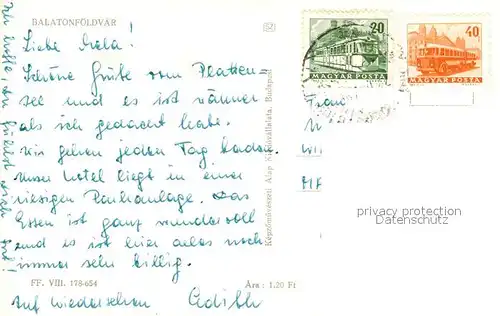 BALATONFÖLDVÁR
Liebe Hela!
Schöne Grüße vom Platten=
see und es ist wärmer
als ich gedacht habe.
Wir gehen jeden Tag baden.
Unser Hotel liegt in einer
riesigen Parkanlage. Das
Essen ist ganz wundervoll
und es ist hier alles noch
immer sehr billig.
FF. VIII. 178-654
Ára: 1.20 Ft
Auf Wiedersehen Edith
Ich hoffe, du fühlst dich gut!
Képzőművészeti Alap Kiadóvállalata, Budapest
20
MAGYAR POSTA
40
MAGYAR POSTA
Frau
privacy protection
Datenschutz